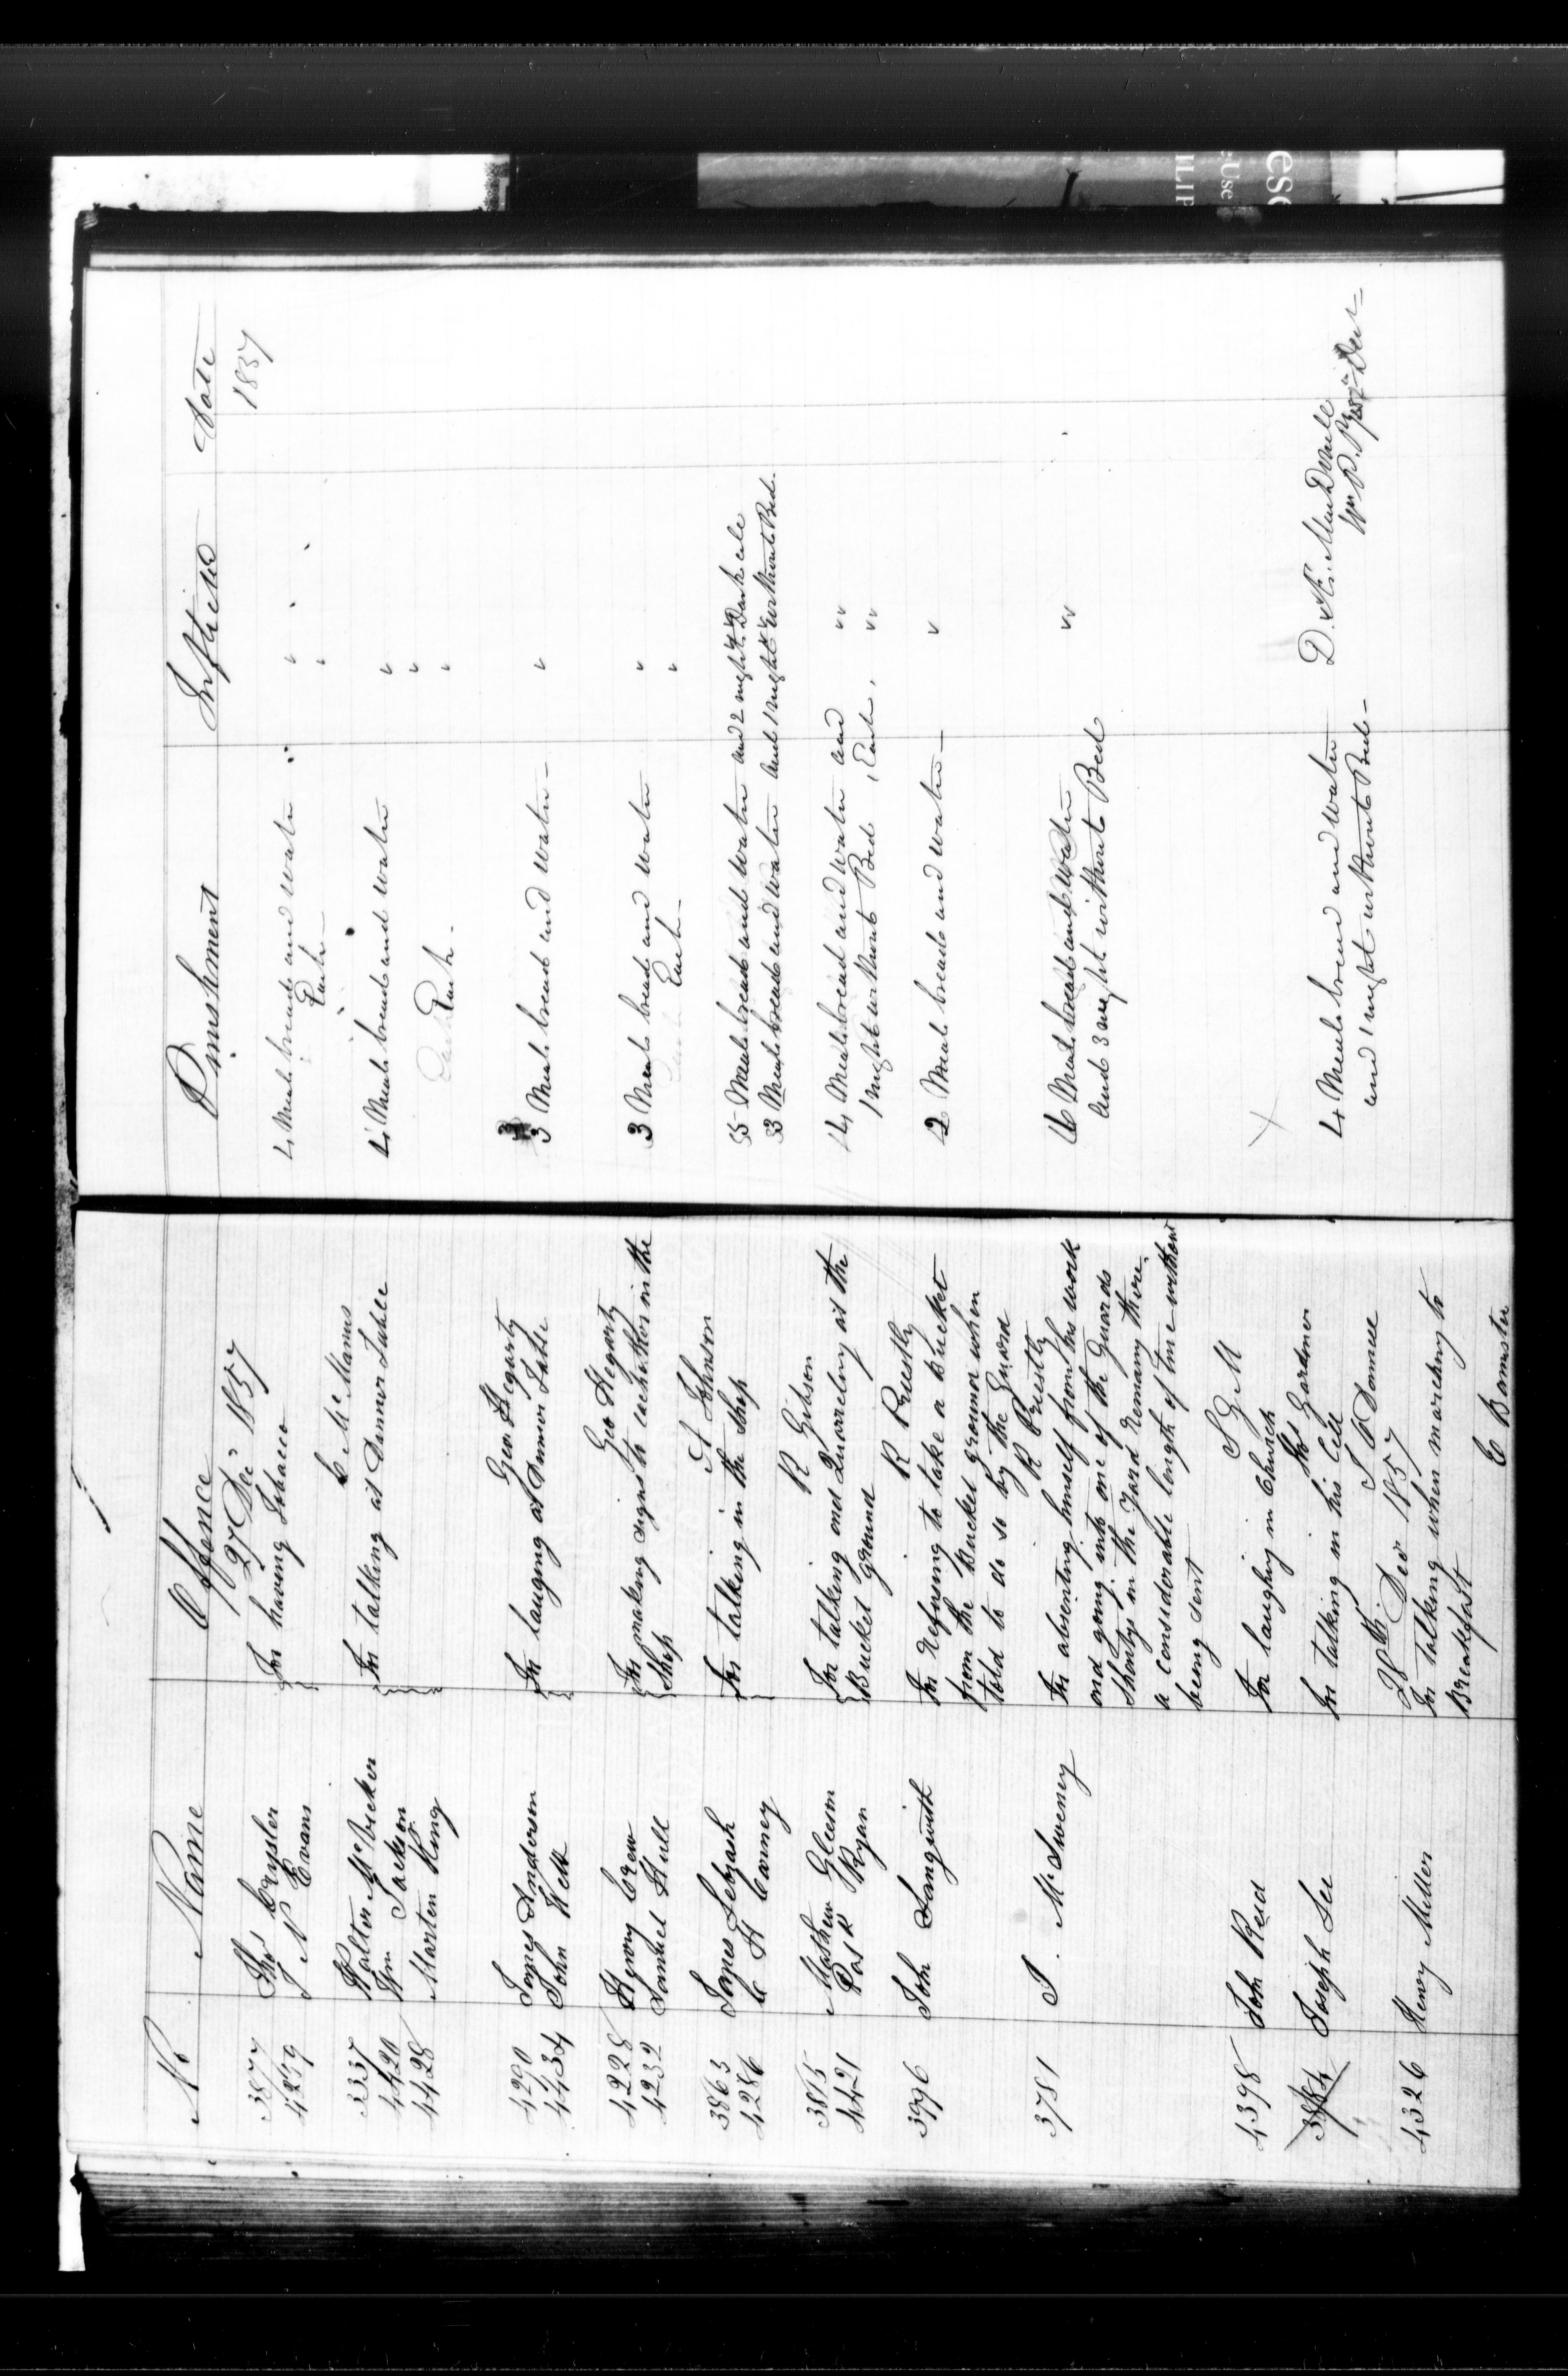 No Name Offence Punishment Inflicted Date
27 Dec 1857 1857
3877 Thos Crysler For having Tobacco 4 Meals bread and water
4279 J N Evans Each
C McManus
3337 Walter McVicker For talking at Dinner Table 4 Meals bread and water
4420 Wm Jackson
4428 Marten King Each
Geo Hegarty
4290 James Anderson For lauging at Dinner Table 3 Meals bread and water
4434 John Nett
Geo Hegarty
4228 Henry Crew For making signs to eachother in the 3 Meals bread and water
4232 Samuel Hull Shop Each
A Johnson
3863 James For talking in the Shop 5 Meals bread and water and 2 nights Dark
4286 C H Corney 3 Meals bread and water and 1 night without Bed
R Gibson
3815 Mathew Gleeson For talking and Quarreling at the 4 Meals bread and water and
4421 Patk Ryan Bucket ground 1 night without Bed Each
R Priestly
3996 John Langwith For Refusing to take a Bucket 2 Meals bread and water
from the Bucket ground when
told to do so by the Guard
R Priestly
3781 J. McSweney For absenting himself from his work 6 Meals bread and water
and going into one of the Guards and 3 night without Bed
Shantys in the Yard Remaing there
a considerable length of time without
being sent
S G M
4398 John Reed For laughing in Church
Jno Gardner
3884 Joseph Lee For talking in his Cell 4 Meals bread and water D. Æ. MacDonell
and 1 night without Bed
J O Donnell
28th Dec 1857
4326 Henry Miller For talking when marching to
Breakfast
C Banister